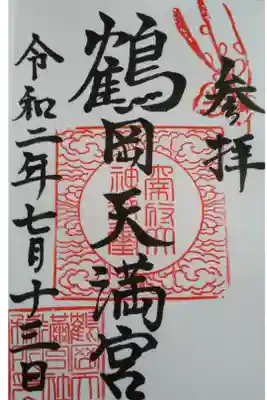 参拝
鶴岡天満宮
令和二年七月十三日